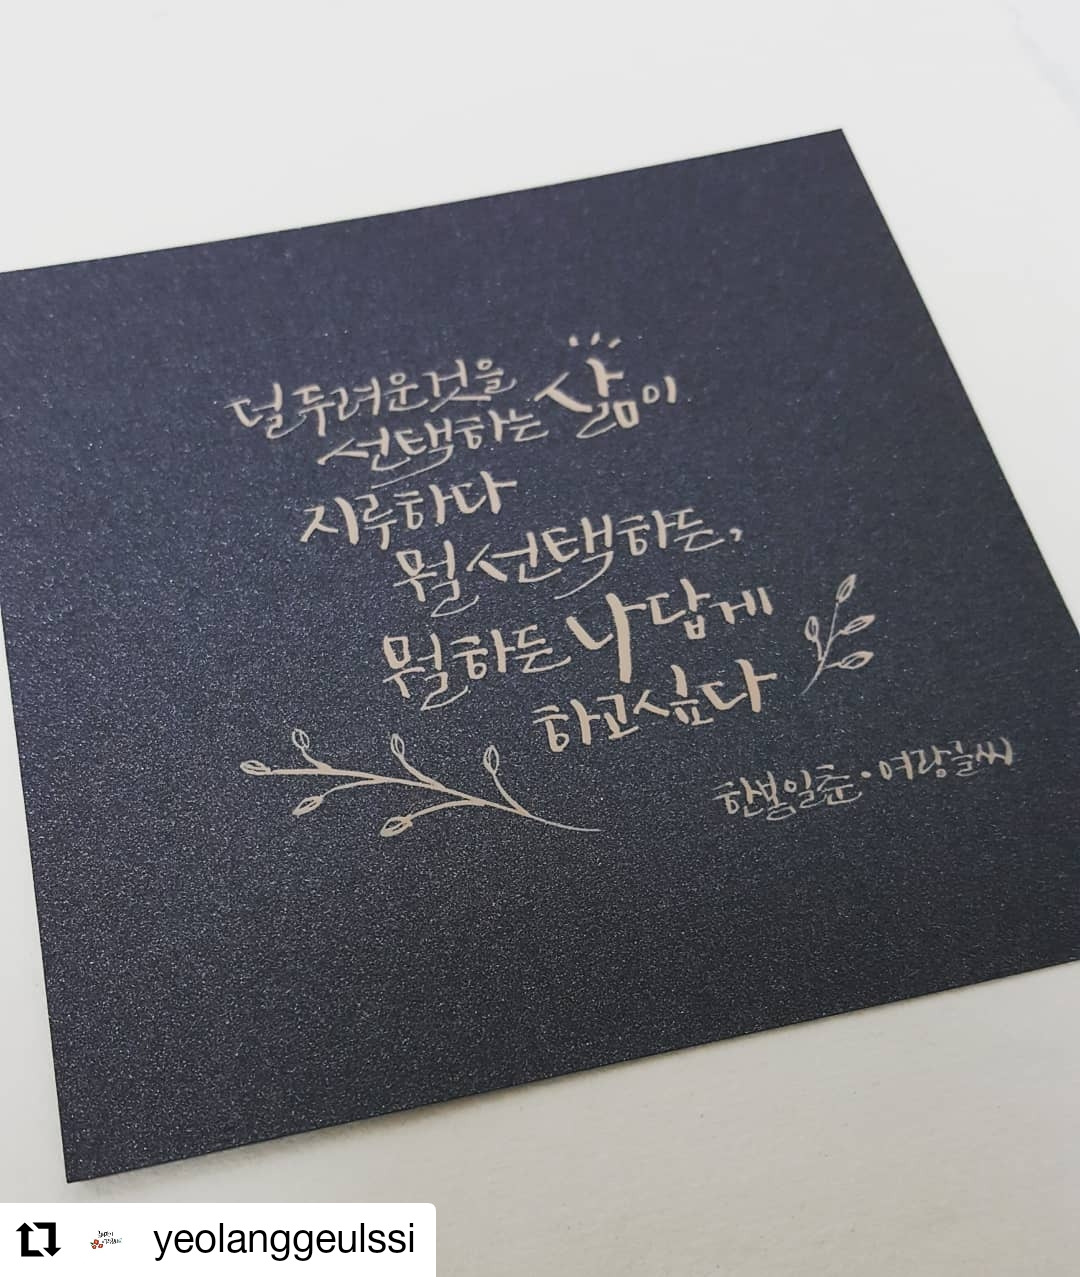 덜 두려운 것을
선택하는 삶이
지루하다
뭘 선택하든,
뭘 하든 나답게
하고싶다
한봄일춘·여랑글씨
yeolanggeulssi